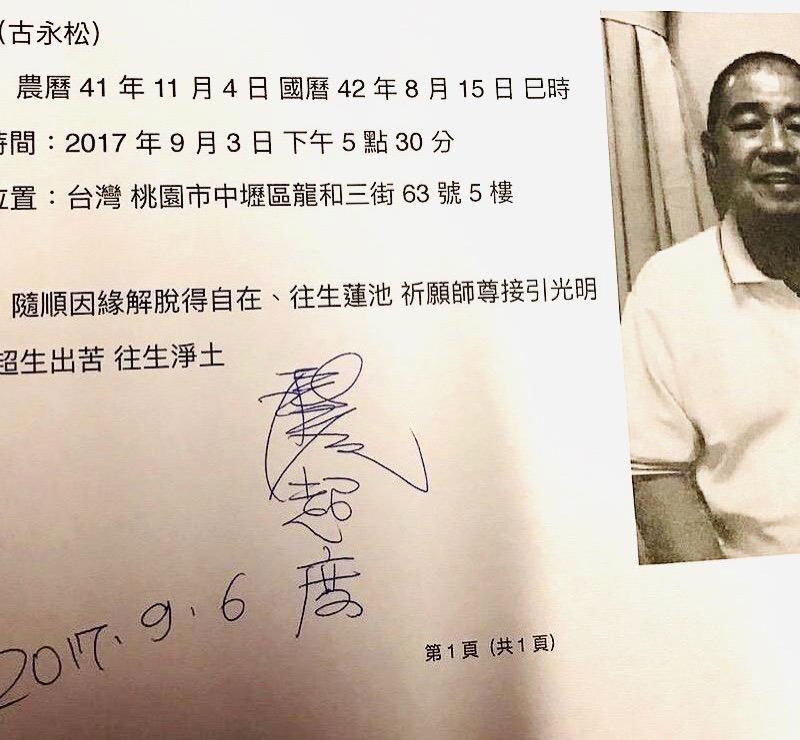 (古永松)
農曆 41 年 11 月 4 日 國曆 42 年 8 月 15 日 巳時
時間：2017 年 9 月 3 日 下午 5 點 30 分
位置：台灣 桃園市中壢區龍和三街 63 號 5 樓
隨順因緣解脫得自在、往生蓮池 祈願師尊接引光明
超生出苦 往生淨土
超
度
2017. 9. 6
第 1 頁 (共 1 頁)